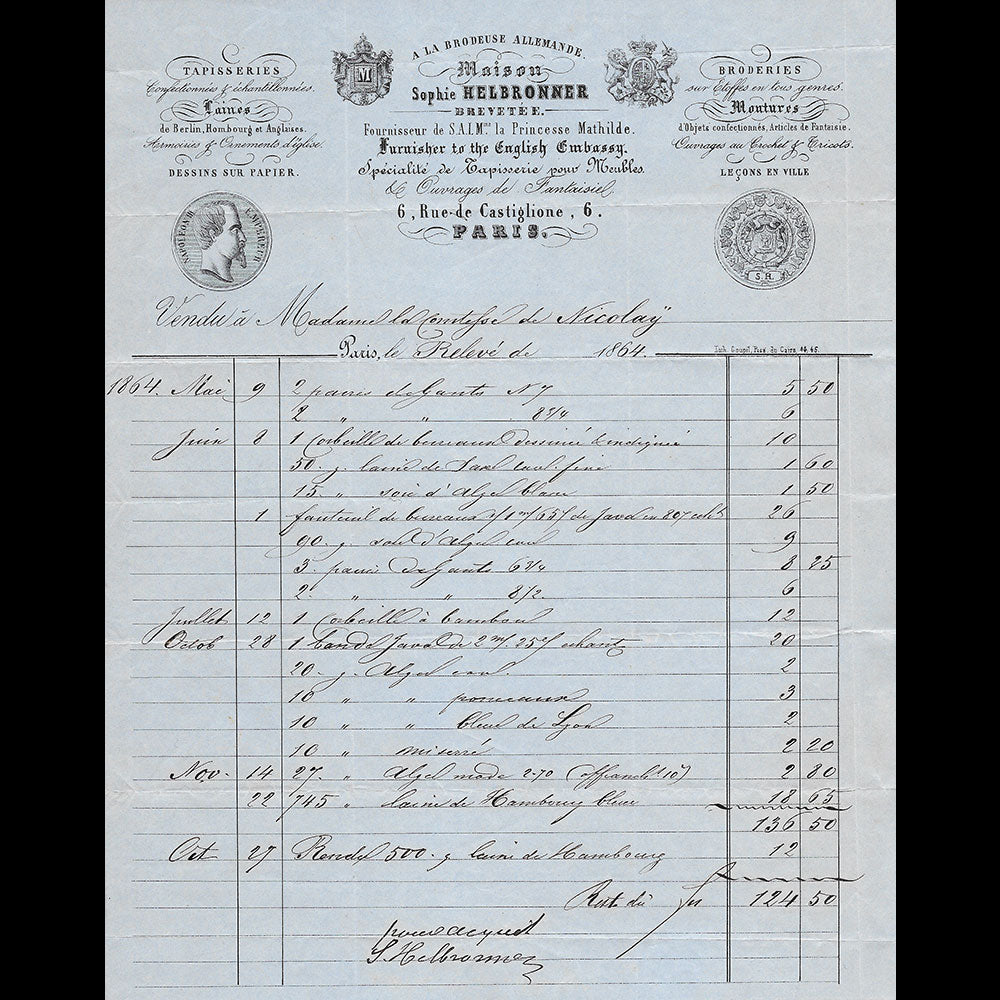 A LA BRODEUSE ALLEMANDE.
Maison
Sophie HELBRONNER
BREVETÉE.
Fournisseur de S.A.I.Mme la Princesse Mathilde.
Furnisher to the English Embassy.
Spécialité de Tapisserie pour Meubles.
& Ouvrages de Fantaisie.
6, Rue de Castiglione, 6.
PARIS.
TAPISSERIES
Confectionnées & échantillonnées.
Laines
de Berlin, Hombourg et Anglaises.
Armoiries & Ornements d'église.
DESSINS SUR PAPIER.
NAPOLEON III EMPEREUR
BRODERIES
sur Etoffes en tous genres.
Montures
d'Objets confectionnés, Articles de Fantaisie.
Ouvrages au Crochet & Tricots.
LEÇONS EN VILLE
S.H.
Vendu à Madame la Comtesse de Nicolaÿ
Paris, le Relevé de 1864.
Lith. Goupil, Pass. du Caire
1864. Mai 9 2 paires de Gants N 7 5 50
2 " " 8 3/4 6
Juin 8 1 Corbeille de bureaux dessinée & indiquée 10
50. g. laine de Saxe coul. fine 1 60
15. " soie d'Alger bleue 1 50
1 fauteuil de bureaux de Java 26
90. g. soie d'Alger coul 9
3. paires de Gants 6 3/4 8 25
2. " " 8 1/2. 6
Juillet 12 1 Corbeille à bambou 12
Octob 28 1 bande Java de 2 m/. 25 c/ echant 20
20. g. Alger coul. 2
10 " " ponceaux 3
10 " " bleu de Lyon 2
10 " 2 20
Nov. 14 27. " Alger mode 2-70 2 80
22 745 " laine de Hambourg bleue 18 65
136 50
Oct 27 Rendu 500. g laine de Hambourg 12
Reste dû frs 124 50
pour acquit
S. Helbronner